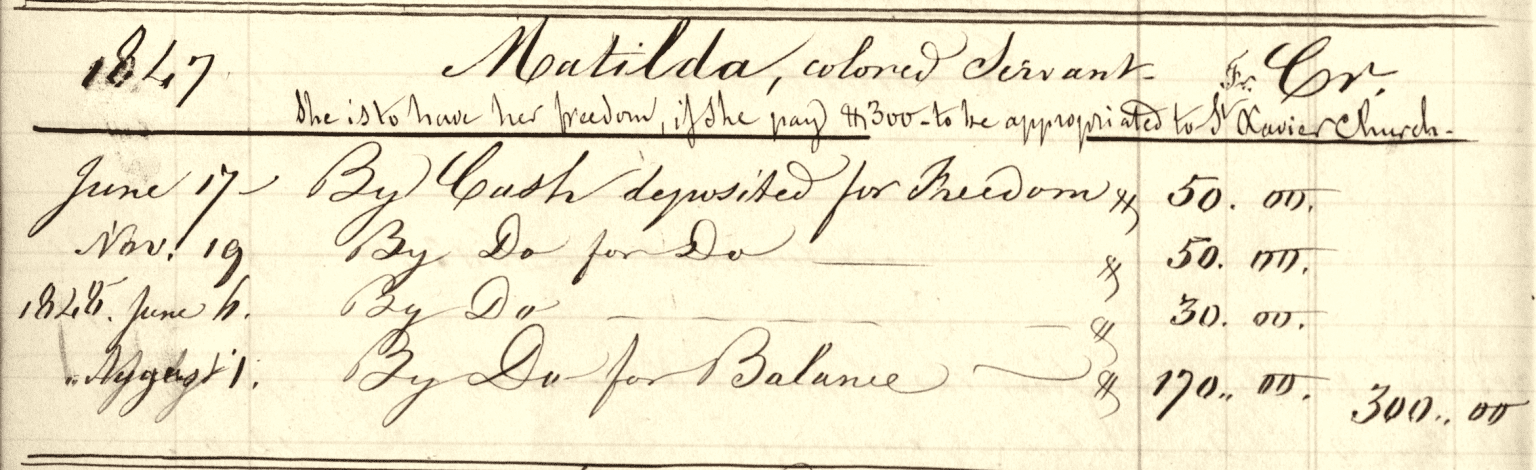 1847 Matilda, colored Servant Fr. Cr.
She is to have her freedom, if She pay $300 - to be appropriated to St Xavier Church -
June 17 - By Cash deposited for Freedom $ 50. 00.
Nov. 19 By Do for Do $ 50. 00.
1848. June 6. By Do $ 30. 00.
" August 1. By Do for Balance $ 170.. 00. 300.. 00